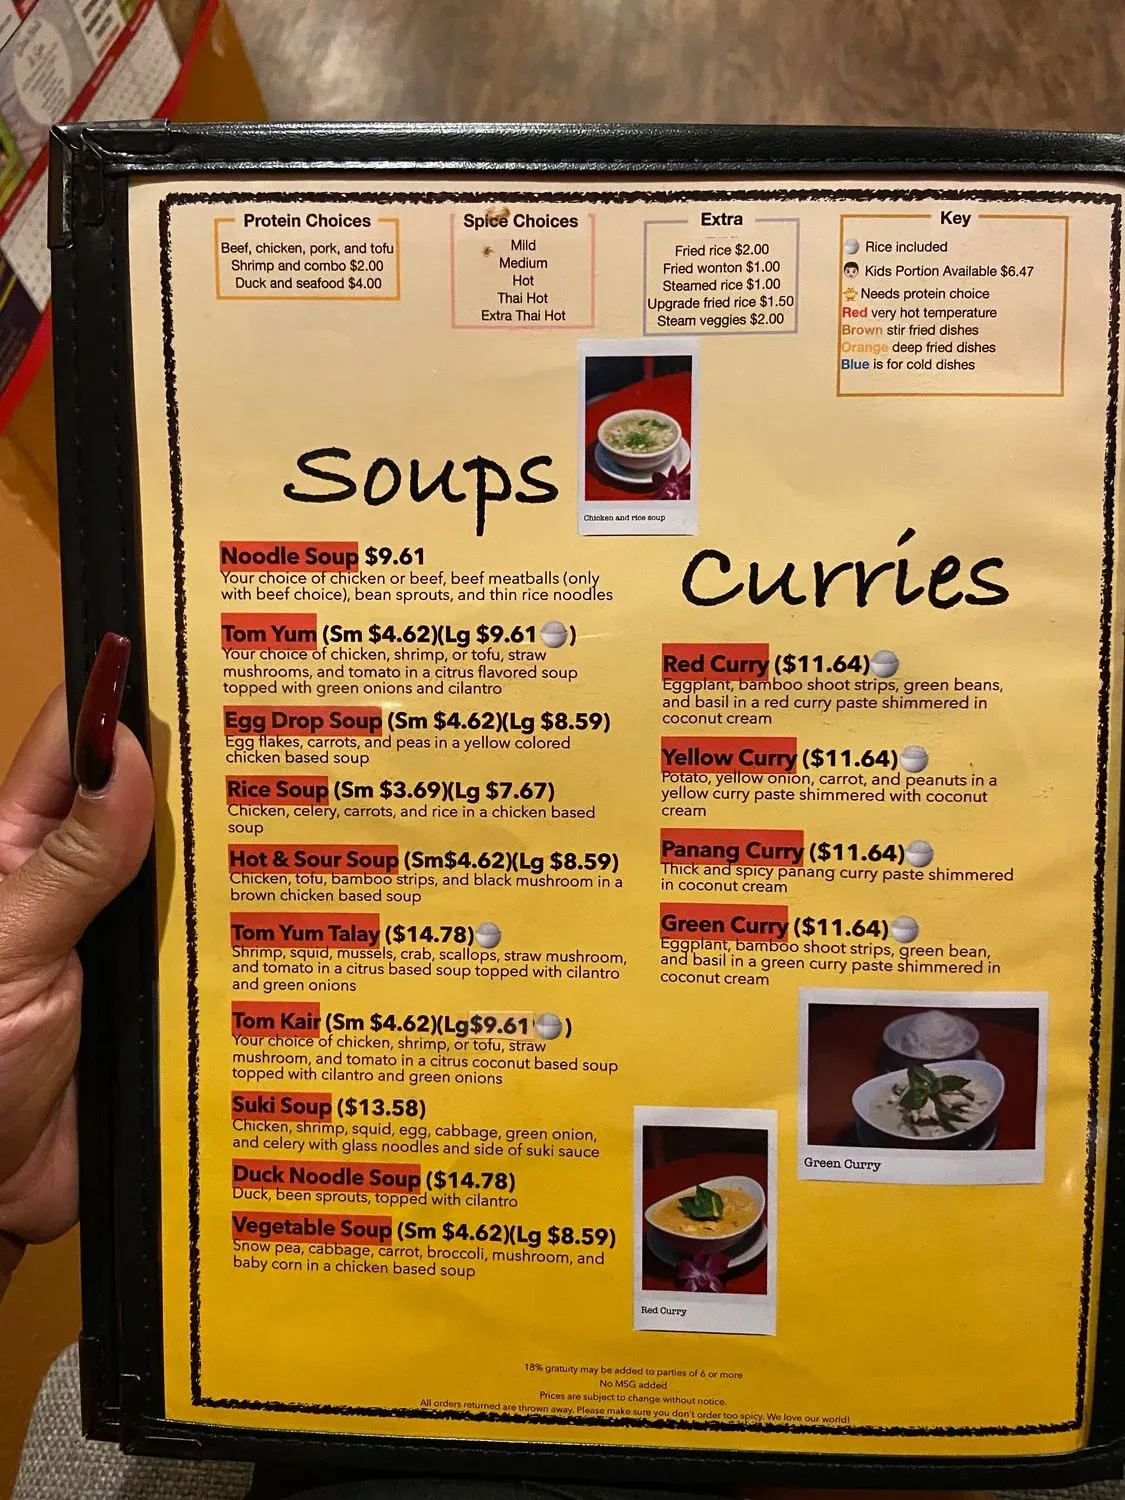 Protein Choices
Beef, chicken, pork, and tofu
Shrimp and combo $2.00
Duck and seafood $4.00
Spice Choices
Mild
Medium
Hot
Thai Hot
Extra Thai Hot
Extra
Fried rice $2.00
Fried wonton $1.00
Steamed rice $1.00
Upgrade fried rice $1.50
Steam veggies $2.00
Key
Rice included
Kids Portion Available $6.47
Needs protein choice
Red very hot temperature
Brown stir fried dishes
Orange deep fried dishes
Blue is for cold dishes
Soups
Chicken and rice soup
Noodle Soup $9.61
Your choice of chicken or beef, beef meatballs (only
with beef choice), bean sprouts, and thin rice noodles
Tom Yum (Sm $4.62)(Lg $9.61 )
Your choice of chicken, shrimp, or tofu, straw
mushrooms, and tomato in a citrus flavored soup
topped with green onions and cilantro
Egg Drop Soup (Sm $4.62)(Lg $8.59)
Egg flakes, carrots, and peas in a yellow colored
chicken based soup
Rice Soup (Sm $3.69)(Lg $7.67)
Chicken, celery, carrots, and rice in a chicken based
soup
Hot & Sour Soup (Sm$4.62)(Lg $8.59)
Chicken, tofu, bamboo strips, and black mushroom in a
brown chicken based soup
Tom Yum Talay ($14.78)
Shrimp, squid, mussels, crab, scallops, straw mushroom,
and tomato in a citrus based soup topped with cilantro
and green onions
Tom Kair (Sm $4.62)(Lg$9.61 )
Your choice of chicken, shrimp, or tofu, straw
mushroom, and tomato in a citrus coconut based soup
topped with cilantro and green onions
Suki Soup ($13.58)
Chicken, shrimp, squid, egg, cabbage, green onion,
and celery with glass noodles and side of suki sauce
Duck Noodle Soup ($14.78)
Duck, been sprouts, topped with cilantro
Vegetable Soup (Sm $4.62)(Lg $8.59)
Snow pea, cabbage, carrot, broccoli, mushroom, and
baby corn in a chicken based soup
Curries
Red Curry ($11.64)
Eggplant, bamboo shoot strips, green beans,
and basil in a red curry paste shimmered in
coconut cream
Yellow Curry ($11.64)
Potato, yellow onion, carrot, and peanuts in a
yellow curry paste shimmered with coconut
cream
Panang Curry ($11.64)
Thick and spicy panang curry paste shimmered
in coconut cream
Green Curry ($11.64)
Eggplant, bamboo shoot strips, green bean,
and basil in a green curry paste shimmered in
coconut cream
Green Curry
Red Curry
18% gratuity may be added to parties of 6 or more
No MSG added
Prices are subject to change without notice.
All orders returned are thrown away. Please make sure you don't order too spicy. We love our world!